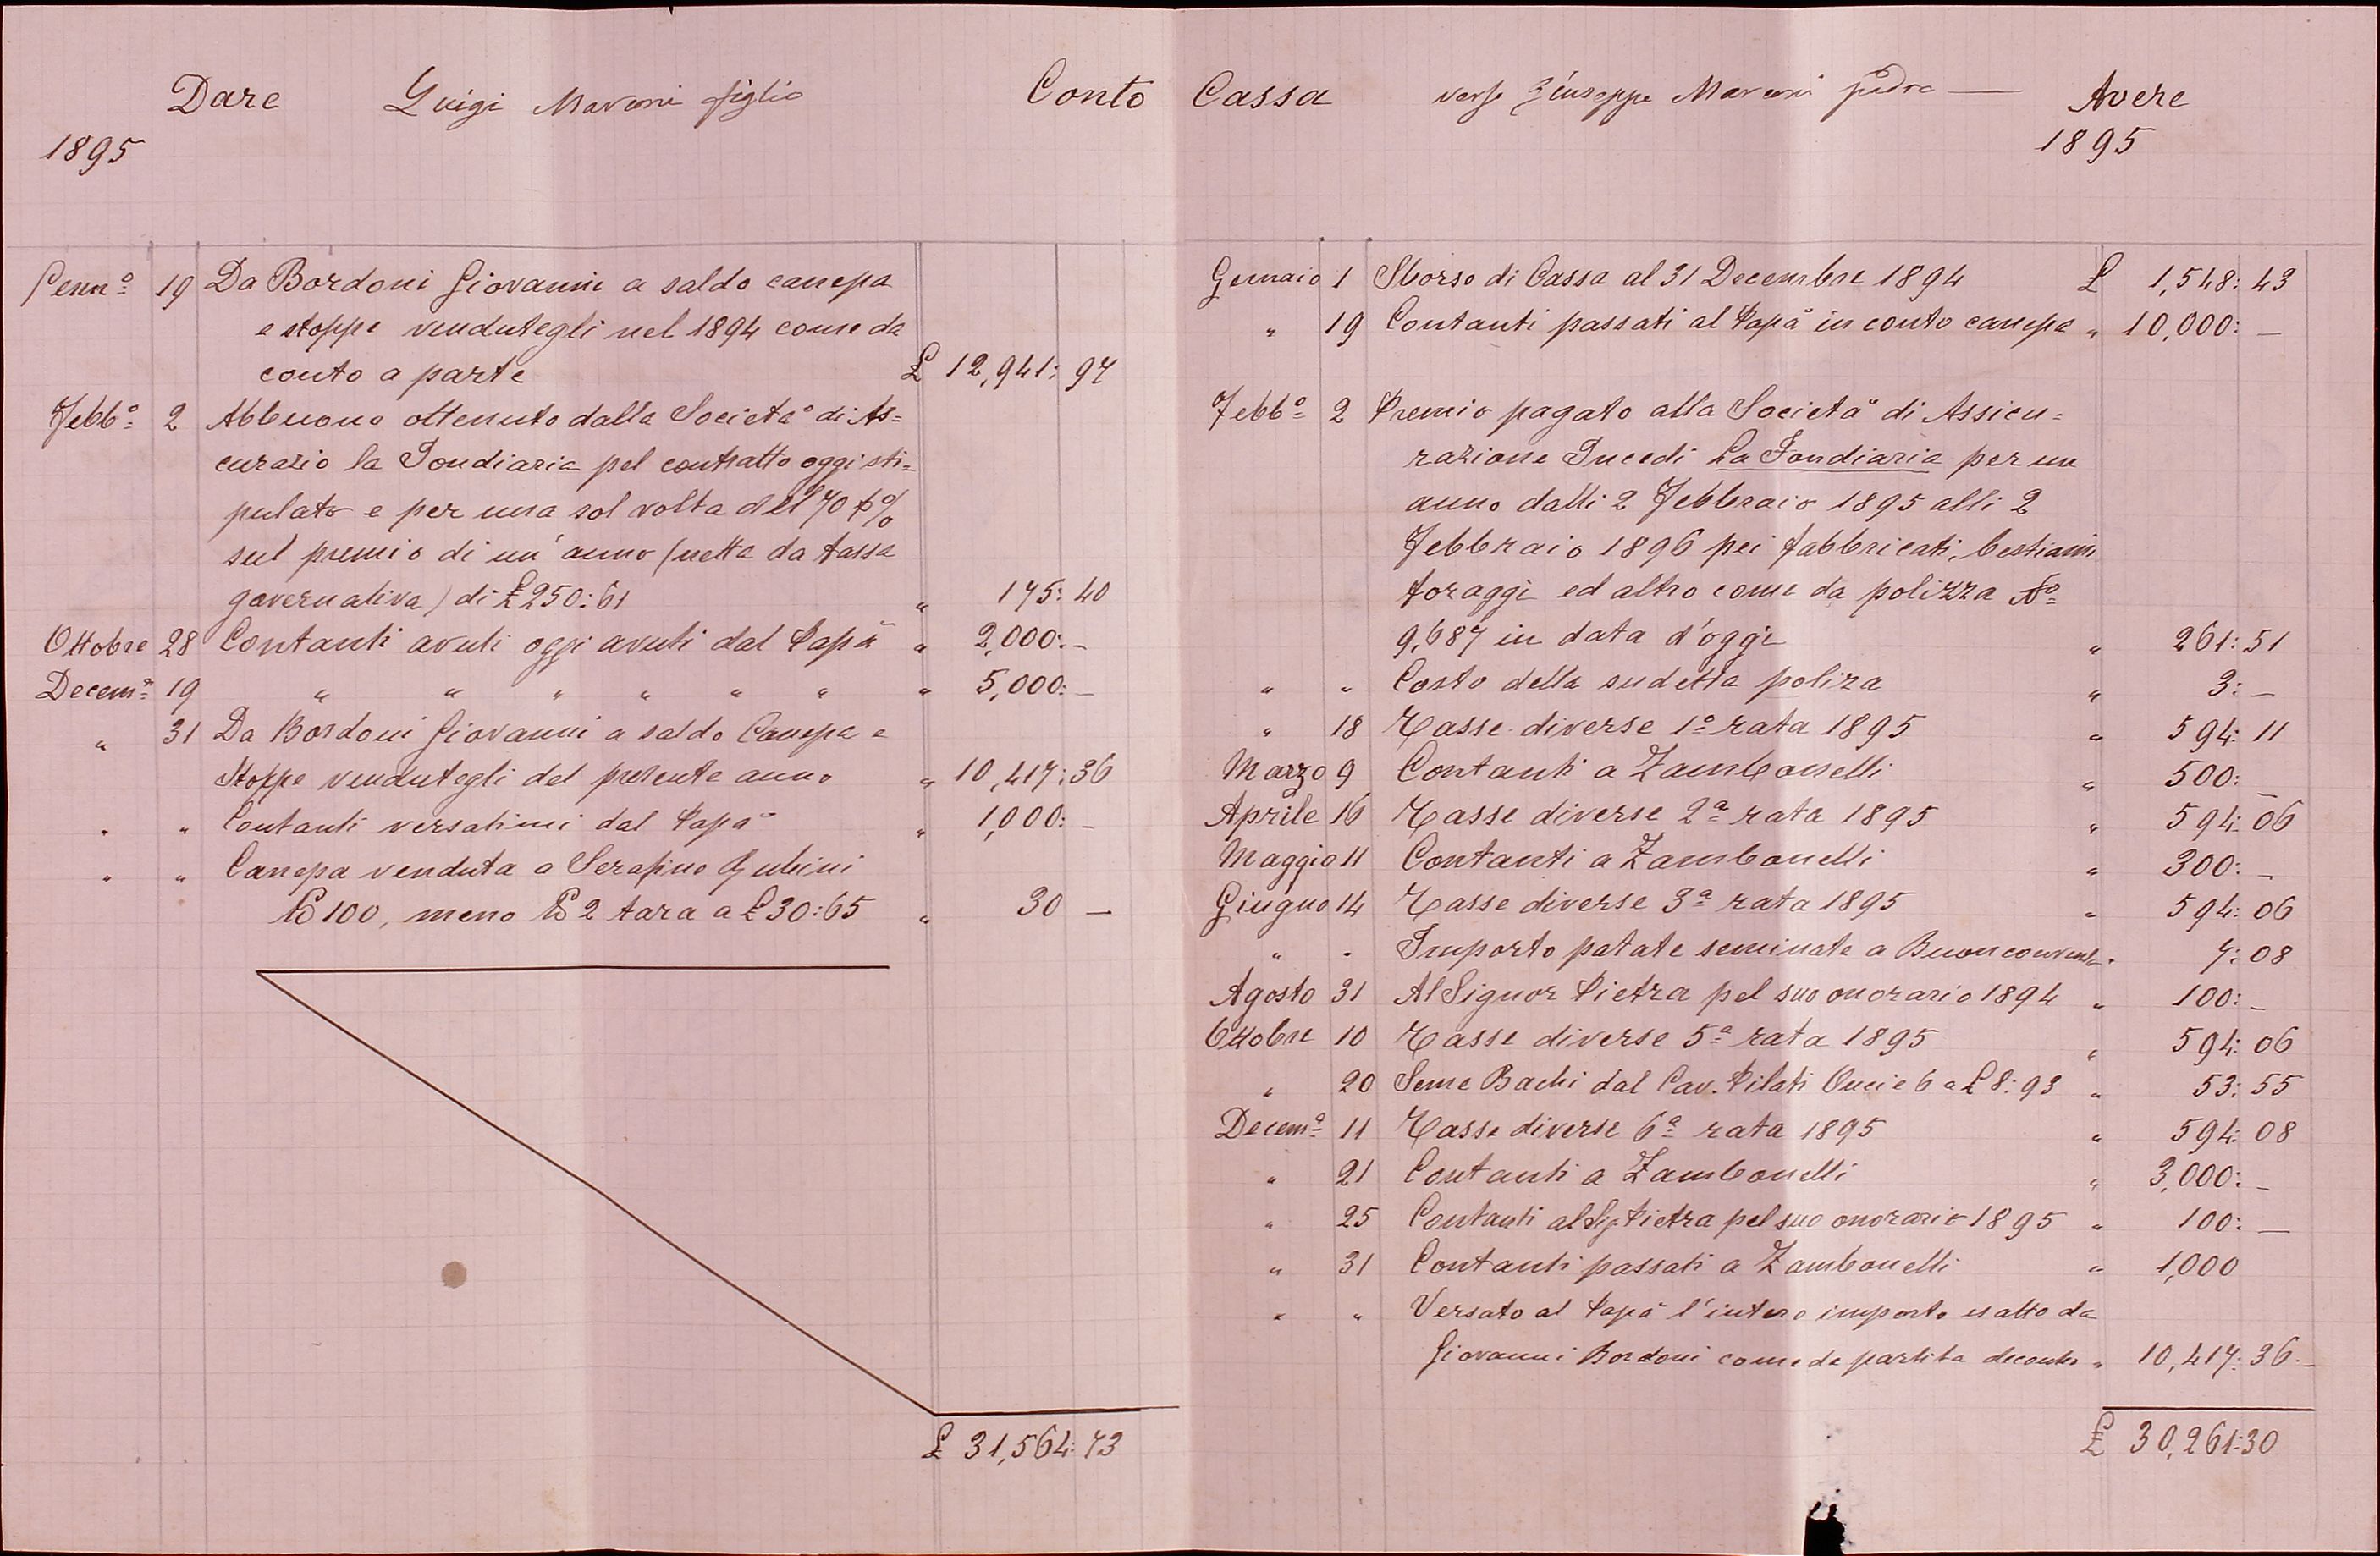 Dare Luigi Marconi figlio Conto Cassa verso Giuseppe Marconi padre — Avere
1895
Genn.o 19 Da Bordoni Giovanni a saldo canepa
e stoppe vendutegli nel 1894 come da
conto a parte £ 12,941: 97
Febb.o 2 Abbuono ottenuto dalla Società di As=
curazio la Fondiaria pel contratto oggi sti=
pulato e per una sol volta del 70 %
sul premio di un' anno (netta da tassa
governativa) di £ 250:61 " 175: 40
Ottobre 28 Contanti avuti oggi avuti dal Papà " 2,000: –
Decem.e 19 " " " " " " " 5,000: –
" 31 Da Bordoni Giovanni a saldo Canepa e
Stoppe vendutegli del presente anno " 10,417: 36
" " Contanti versatimi dal Papà " 1,000: –
" " Canepa venduta a Serafino Gubini
℔ 100, meno ℔ 2 tara a £ 30:65 " 30 —
£ 31,564: 73
1895
Gennaio 1 Sborso di Cassa al 31 Decembre 1894 £ 1,548: 43
" 19 Contanti passati al Papà in conto canepa " 10,000: –
Febb.o 2 Premio pagato alla Società di Assicu=
razione Incedi La Fondiaria per un
anno dalli 2 Febbraio 1895 alli 2
Febbraio 1896 pei fabbricati, bestiami
foraggi ed altro come da polizza No
9,687 in data d'oggi " 261: 51
" " Costo della sudetta poliza " 3: –
" 18 Tasse diverse 1a rata 1895 " 594: 11
Marzo 9 Contanti a Zambonelli " 500: –
Aprile 16 Tasse diverse 2a rata 1895 " 594: 06
Maggio 11 Contanti a Zambonelli " 300: –
Giugno 14 Tasse diverse 3a rata 1895 " 594: 06
" " Importo patate seminate a Buonconvento " 7: 08
Agosto 31 Al Signor Pietra pel suo onorario 1894 " 100: –
Ottobre 10 Tasse diverse 5a rata 1895 " 594: 06
" 20 Seme Bachi dal Cav. Pilati Oncie 6 a £ 8:93 " 53: 55
Decem.e 11 Tasse diverse 6a rata 1895 " 594: 08
" 21 Contanti a Zambonelli " 3,000: –
" 25 Contanti al Sig. Pietra pel suo onorario 1895 " 100: —
" 31 Contanti passati a Zambonelli " 1,000
" " Versato al Papà l'intero importo esatto da
Giovanni Bordoni come da partita decontro " 10,417: 36. –
£ 30,261:30